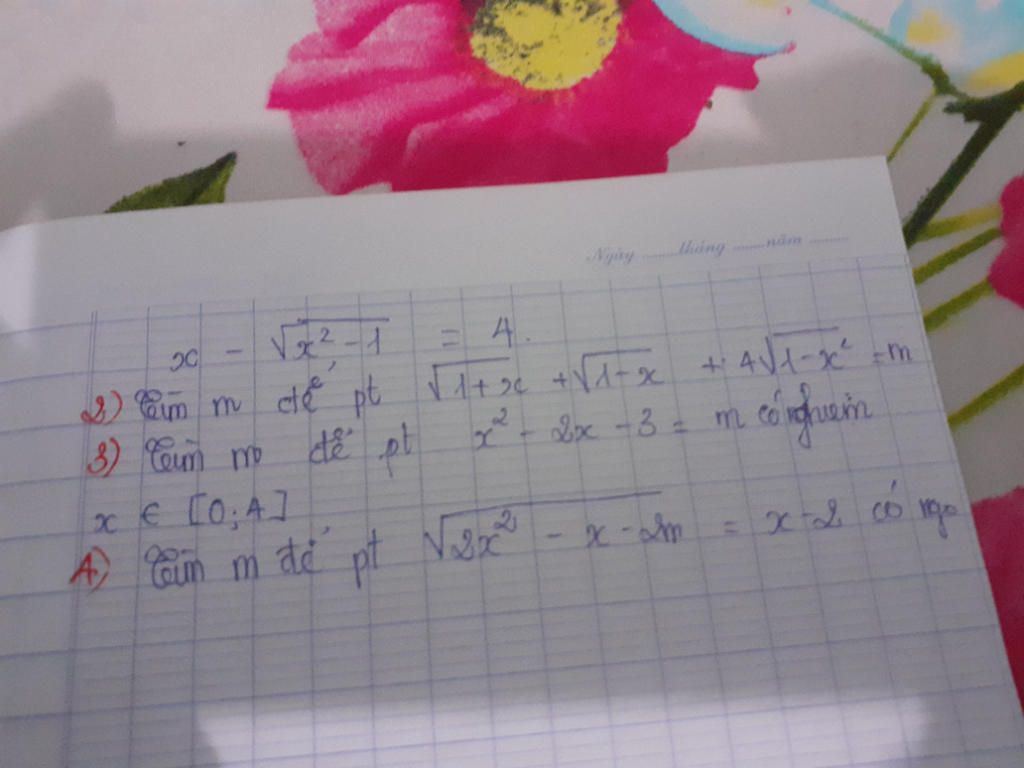 Ngày ........tháng .......năm .........
x - √(x² - 1) = 4.
2) Tìm m để pt √(1+x) + √(1-x) + 4√(1-x²) = m
3) Tìm m để pt x² - 2x - 3 = m có nghiệm
x ∈ [0; 4]
4) Tìm m để pt √(2x² - x - 2m) = x-2 có ngo